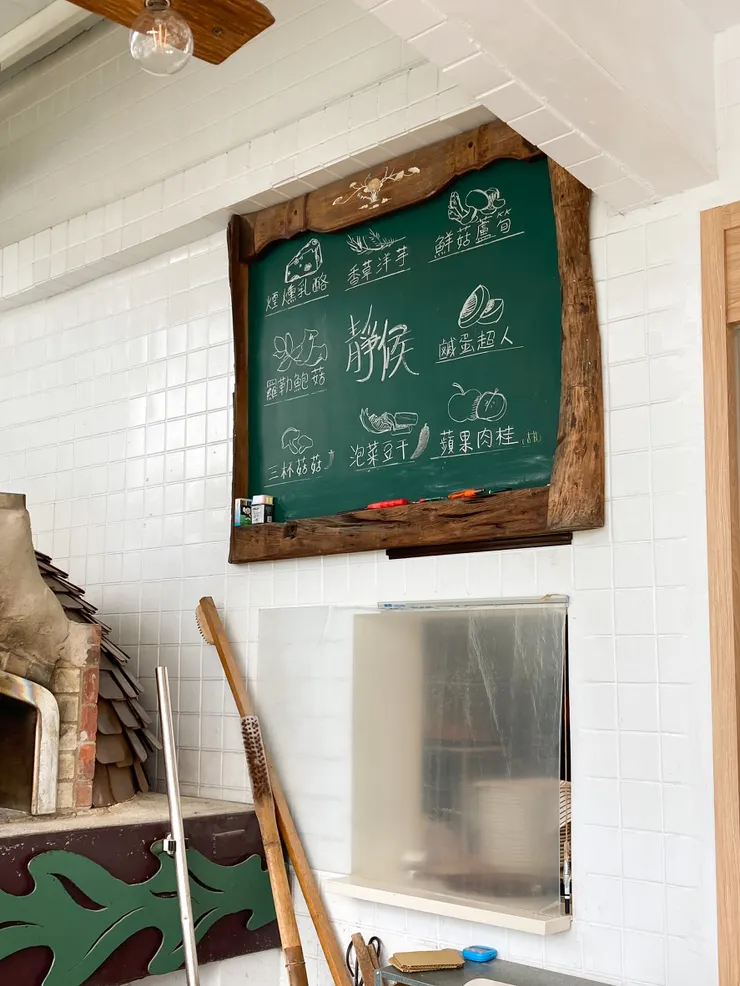 煙燻乳酪
香草洋芋
鮮菇蘆筍
羅勒鮑菇
靜候
鹹蛋超人
三杯菇菇
泡菜豆干
蘋果肉桂